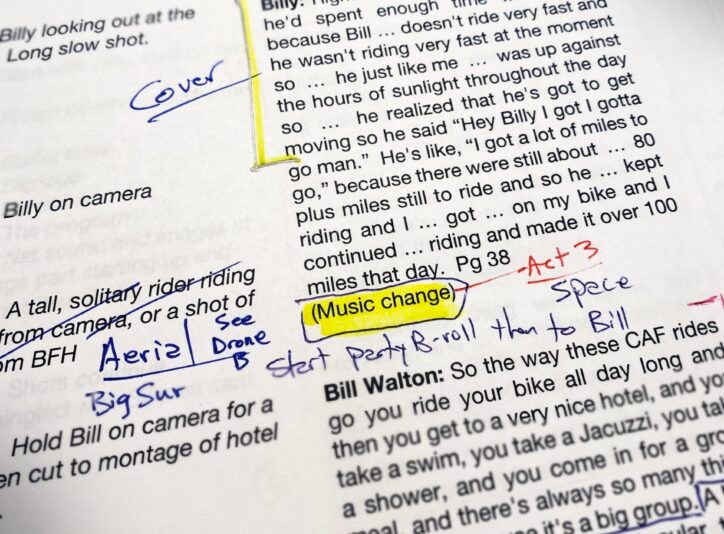 Billy looking out at the
Long slow shot.
Cover
Billy on camera
A tall, solitary rider riding
from camera, or a shot of
om BFH
Aerial
See
Drone
B
Big Sur
Hold Bill on camera for a
en cut to montage of hotel
Billy:
he'd spent enough time
because Bill ... doesn't ride very fast and
he wasn't riding very fast at the moment
so ... he just like me ... was up against
the hours of sunlight throughout the day
so ... he realized that he's got to get
moving so he said “Hey Billy I got I gotta
go man.” He's like, “I got a lot of miles to
go,” because there were still about ... 80
plus miles still to ride and so he ... kept
riding and I ... got ... on my bike and I
continued ... riding and made it over 100
miles that day. Pg 38
(Music change)
Act 3
Space
Start party B-roll then to Bill
Bill Walton: So the way these CAF rides
go you ride your bike all day long and
then you get to a very nice hotel, and you
take a swim, you take a Jacuzzi, you ta
a shower, and you come in for a gro
meal, and there's always so many thi
it's a big group. A